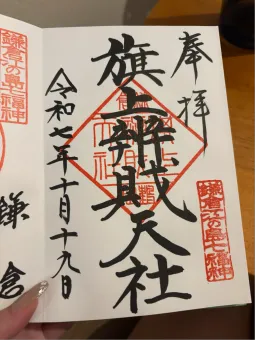 奉拝
旗上辨財天社
令和七年十月十九日
鎌倉江の島七福神
鎌倉江の島七福神
鎌倉